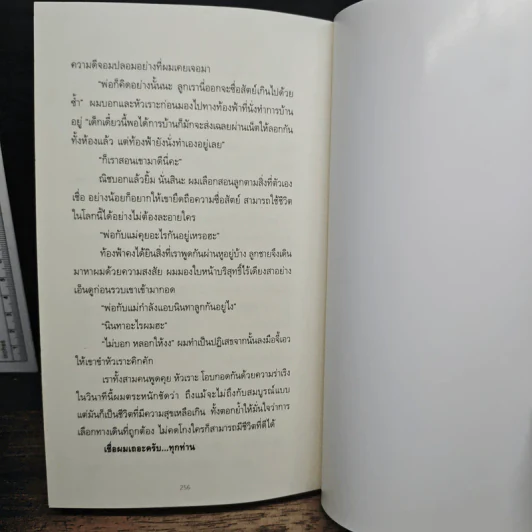 ความดีจอมปลอมอย่างที่ผมเคยเจอมา
“พ่อก็คิดอย่างนั้นนะ ลูกเรานี่ออกจะซื่อสัตย์เกินไปด้วย
ซ้ำ” ผมบอกและหัวเราะก่อนมองไปทางท้องฟ้าที่นั่งทำการบ้าน
อยู่ “เด็กเดี๋ยวนี้พอได้การบ้านก็มักจะส่งเฉลยผ่านเน็ตให้ลอกกัน
ทั้งห้องแล้ว แต่ท้องฟ้ายังนั่งทำเองอยู่เลย”
“ก็เราสอนเขามาดีนี่คะ”
ณิชบอกแล้วยิ้ม นั่นสินะ ผมเลือกสอนลูกตามสิ่งที่ตัวเอง
เชื่อ อย่างน้อยก็อยากให้เขายึดถือความซื่อสัตย์ สามารถใช้ชีวิต
ในโลกนี้ได้อย่างไม่ต้องละอายใคร
“พ่อกับแม่คุยอะไรกันอยู่เหรอฮะ”
ท้องฟ้าคงได้ยินสิ่งที่เราพูดกันผ่านหูอยู่บ้าง ลูกชายจึงเดิน
มาหาผมด้วยความสงสัย ผมมองใบหน้าบริสุทธิ์ไร้เดียงสาอย่าง
เอ็นดูก่อนรวบเขาเข้ามากอด
“พ่อกับแม่กำลังแอบนินทาลูกกันอยู่ไง”
“นินทาอะไรผมฮะ”
“ไม่บอก หลอกให้งง” ผมทำเป็นปฏิเสธจากนั้นลงมือจี้เอว
ให้เขาขำหัวเราะคิกคัก
เราทั้งสามคนพูดคุย หัวเราะ โอบกอดกันด้วยความร่าเริง
ในวินาทีนี้ผมตระหนักชัดว่า ถึงแม้จะไม่ถึงกับสมบูรณ์แบบ
แต่มันก็เป็นชีวิตที่มีความสุขเหลือเกิน ทั้งตอกย้ำให้มั่นใจว่าการ
เลือกทางเดินที่ถูกต้อง ไม่คดโกงใครก็สามารถมีชีวิตที่ดีได้
เชื่อผมเถอะครับ...ทุกท่าน
256